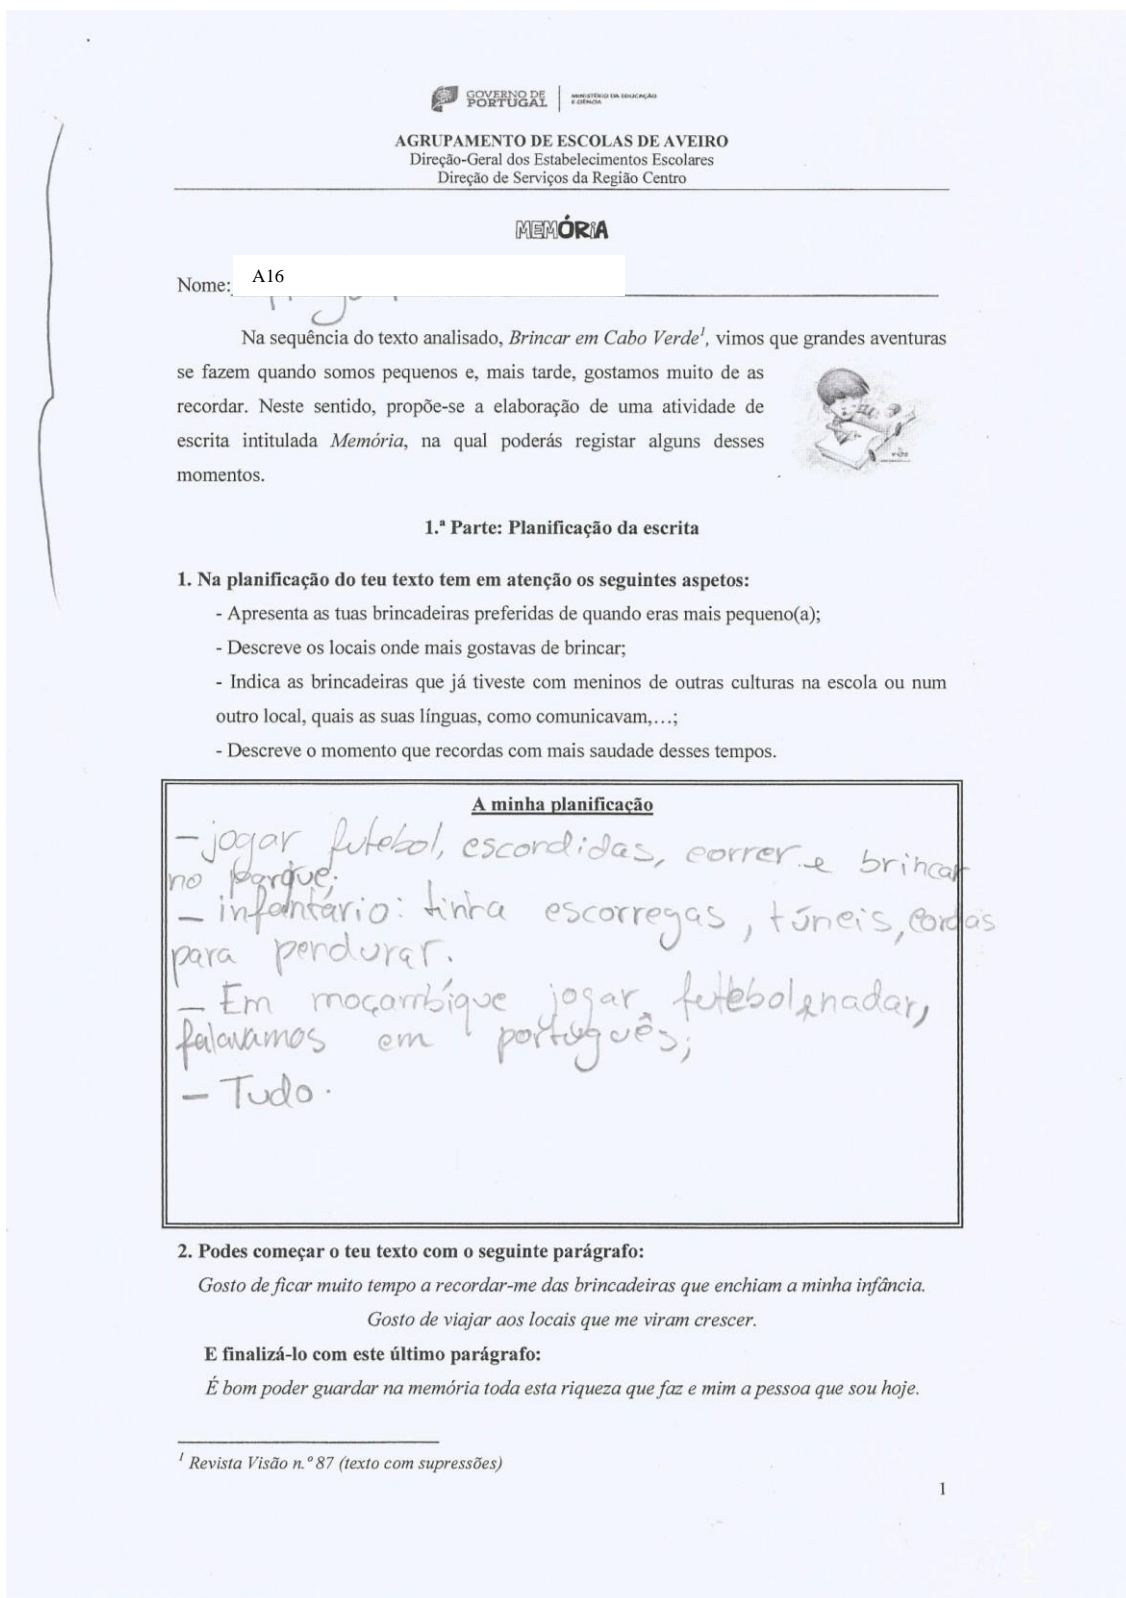 GOVERNO DE
PORTUGAL
MINISTÉRIO DA EDUCAÇÃO
E CIÊNCIA
AGRUPAMENTO DE ESCOLAS DE AVEIRO
Direção-Geral dos Estabelecimentos Escolares
Direção de Serviços da Região Centro
MEMÓRiA
Nome: A16
Na sequência do texto analisado, Brincar em Cabo Verde¹, vimos que grandes aventuras
se fazem quando somos pequenos e, mais tarde, gostamos muito de as
recordar. Neste sentido, propõe-se a elaboração de uma atividade de
escrita intitulada Memória, na qual poderás registar alguns desses
momentos.
1.ª Parte: Planificação da escrita
1. Na planificação do teu texto tem em atenção os seguintes aspetos:
- Apresenta as tuas brincadeiras preferidas de quando eras mais pequeno(a);
- Descreve os locais onde mais gostavas de brincar;
- Indica as brincadeiras que já tiveste com meninos de outras culturas na escola ou num
outro local, quais as suas línguas, como comunicavam,…;
- Descreve o momento que recordas com mais saudade desses tempos.
A minha planificação
– jogar futebol, escondidas, correr e brincar
no parque;
– infantário: tinha escorregas, túneis, cordas
para pendurar.
– Em moçambique jogar futebol e nadar,
falavamos em português;
– Tudo.
2. Podes começar o teu texto com o seguinte parágrafo:
Gosto de ficar muito tempo a recordar-me das brincadeiras que enchiam a minha infância.
Gosto de viajar aos locais que me viram crescer.
E finalizá-lo com este último parágrafo:
É bom poder guardar na memória toda esta riqueza que faz e mim a pessoa que sou hoje.
¹ Revista Visão n.º 87 (texto com supressões)
1